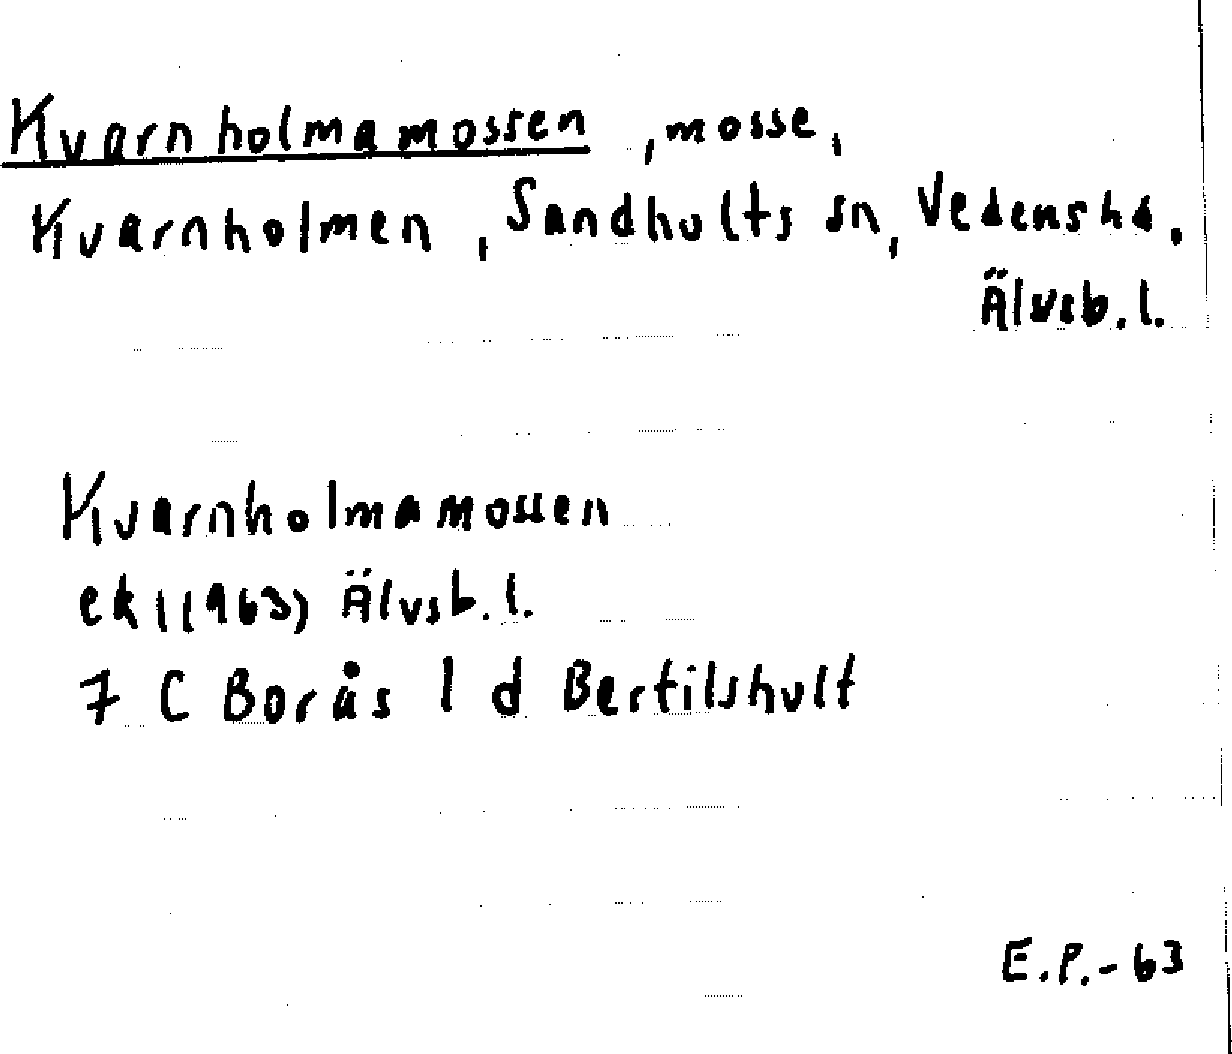 Kvarnholmamossen, mosse,
Kvarnholmen, Sandhults sn, Vedenshd.
Älvsb. l.
Kvarnholmamossen
ek 1(1963) Älvsb. l.
7 C Borås 1 d Bertilshult
E.P.-63